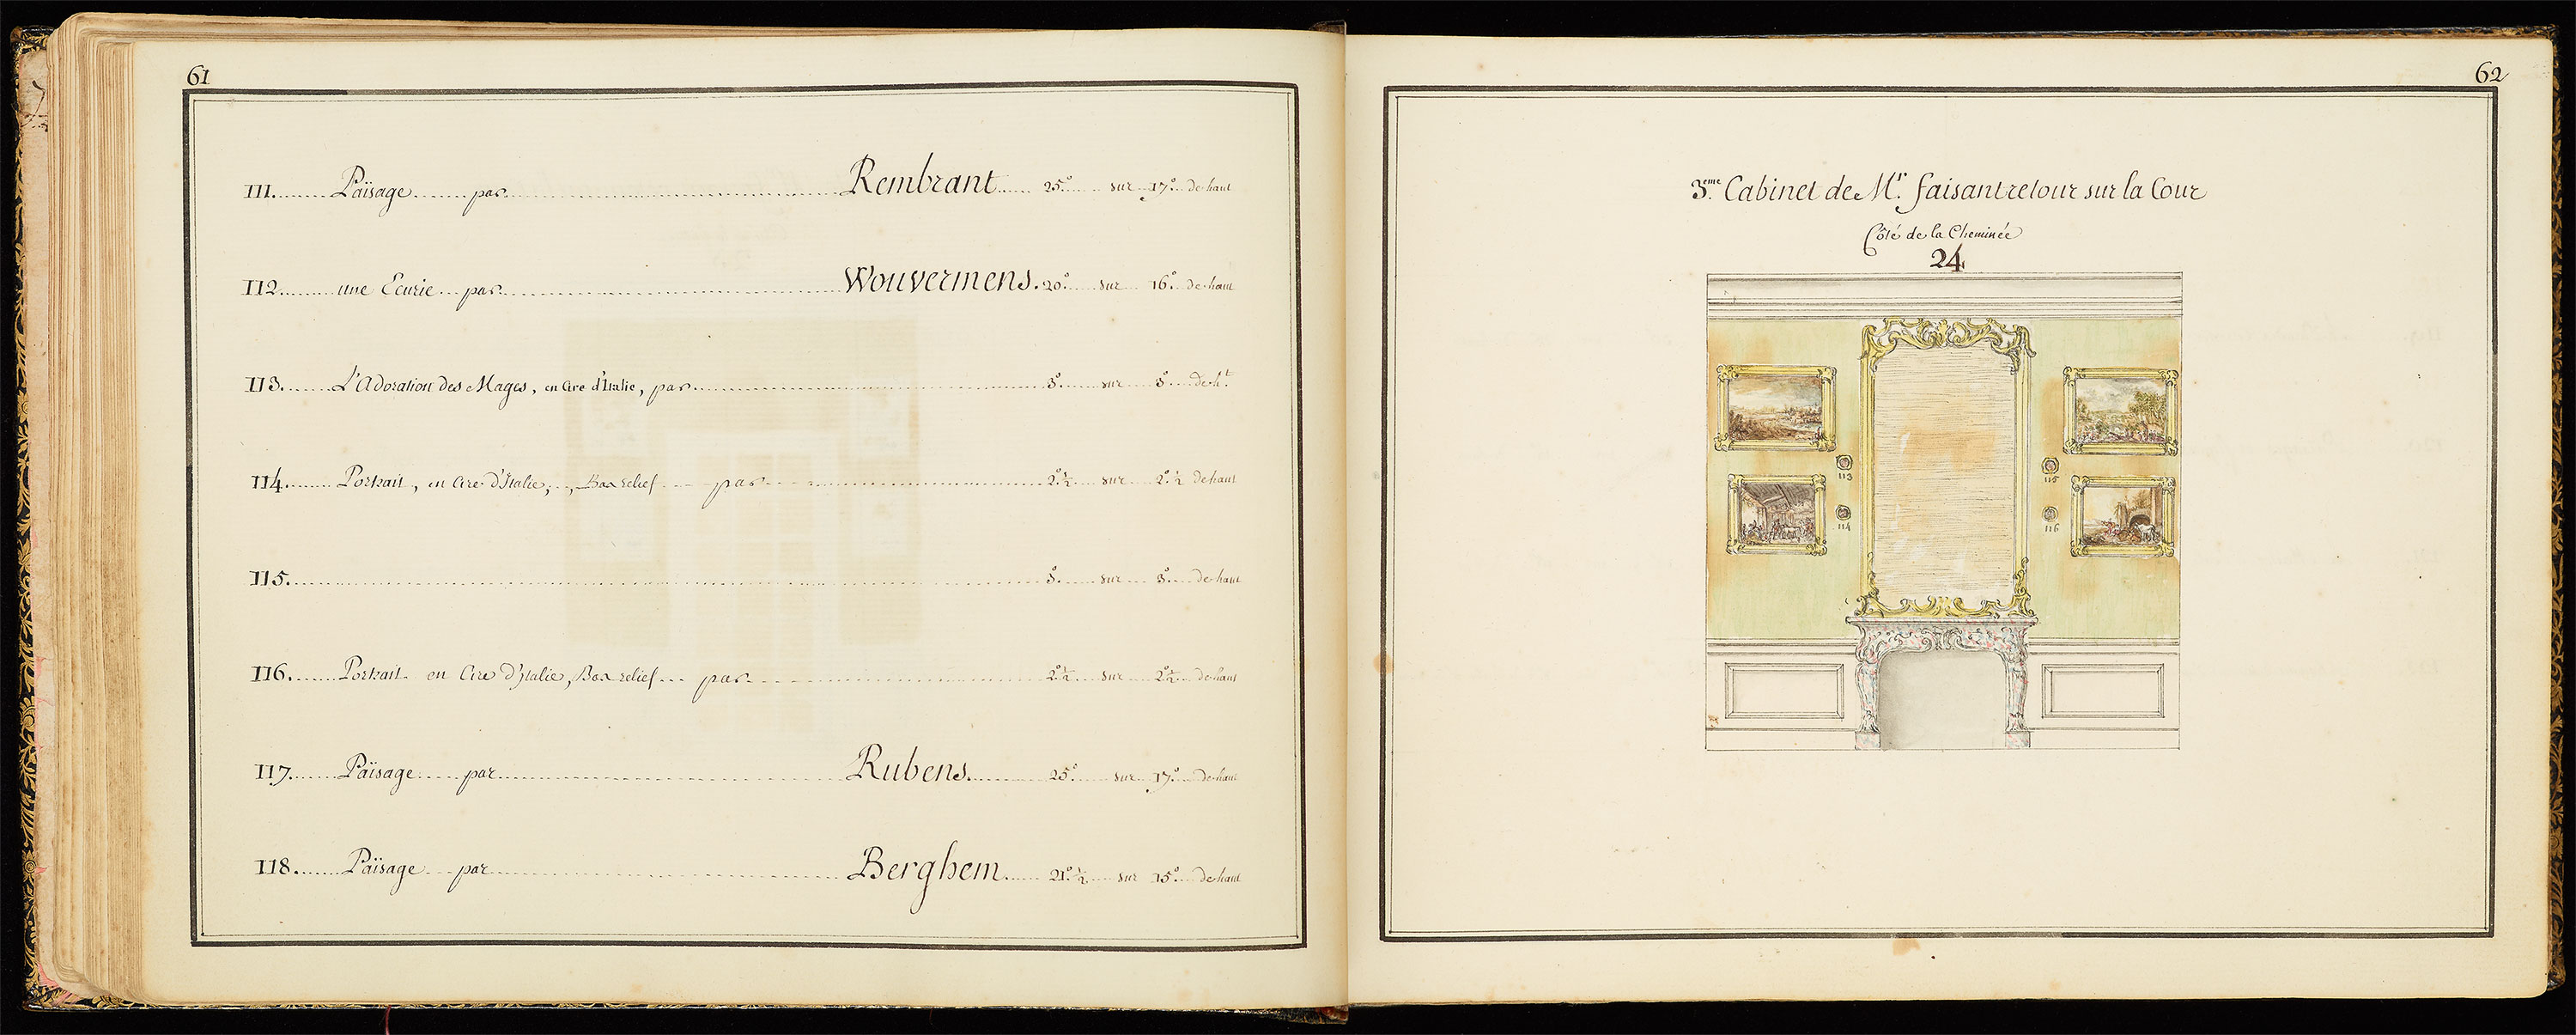 61
111. Païsage par Rembrant 25° sur 17° de haut
112. une Ecurie par Wouvermens. 20° sur 16° de haut
113. L'Adoration des Mages, en Cire d'Italie, par 3° sur 3° de h.t
114. Portrait, en Cire d'Italie, Bas relief par 2° ½ sur 2° ½ de haut
115. 3° sur 3° de haut
116. Portrait en Cire d'Italie, Bas relief par 2° ½ sur 2° ½ de haut
117. Païsage par Rubens 25° sur 17° de haut
118. Païsage par Berghem 21° ½ sur 15° de haut
62
3.eme Cabinet de M.r faisant retour sur la Cour
Côté de la Cheminée
24
113
115
114
116